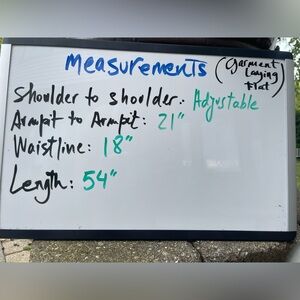 Measurements (Garment Laying Flat)
Shoulder to shoulder: Adjustable
Armpit to Armpit: 21"
Waistline: 18"
Length: 54"